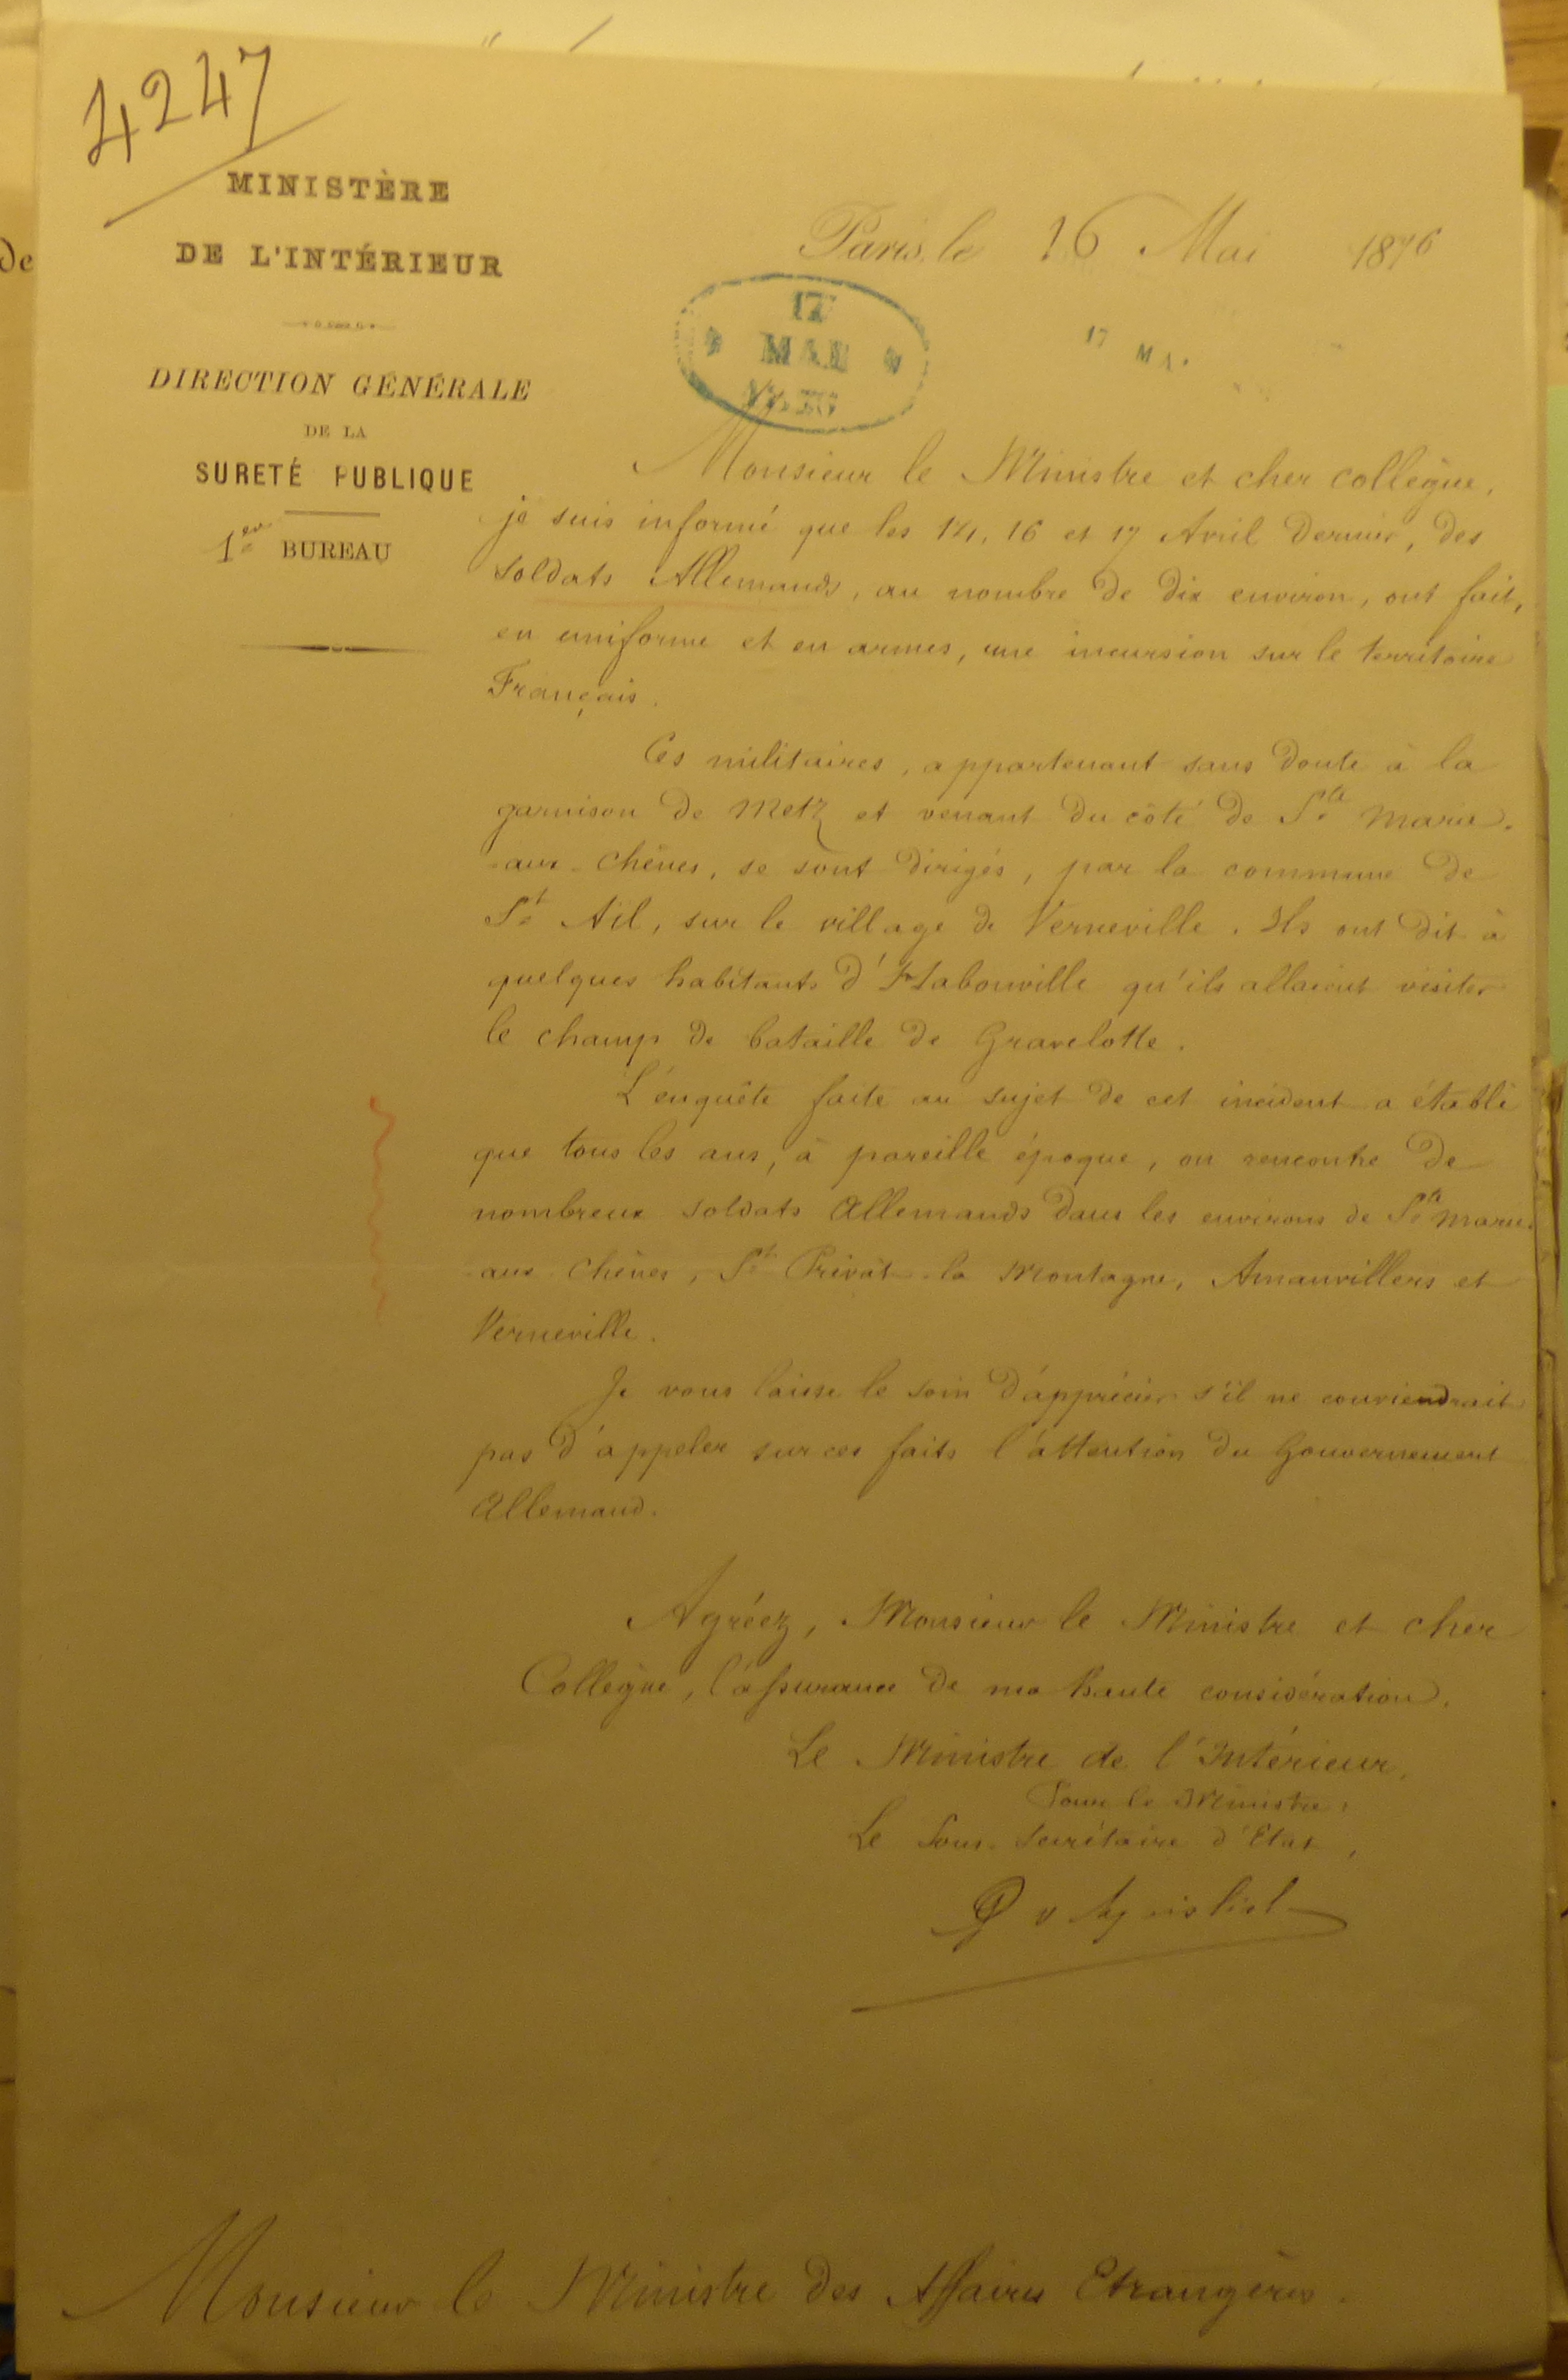 4247
MINISTÈRE
DE L'INTÉRIEUR
DIRECTION GÉNÉRALE
DE LA
SURETÉ PUBLIQUE
1er BUREAU
Paris, le 16 Mai 1876
17
MAI
1876
17 MA
Monsieur le Ministre et cher collègue,
je suis informé que les 14, 16 et 17 Avril Dernier, des
soldats Allemands, au nombre de dix environ, ont fait,
en uniforme et en armes, une incursion sur le territoire
Français.
Ces militaires, appartenant sans doute à la
garnison de Metz et venant du côté de Ste Marie-
-aux-Chênes, se sont dirigés, par la commune de
St Ail, sur le village de Verneville. Ils ont dit à
quelques habitants d'Habonville qu'ils allaient visiter
le champ de bataille de Gravelotte.
L'enquête faite au sujet de cet incident a établi
que tous les ans, à pareille époque, on rencontre de
nombreux soldats Allemands dans les environs de Ste Marie-
-aux-Chênes, St Privat-la Montagne, Amanvillers et
Verneville.
Je vous laisse le soin d'apprécier s'il ne conviendrait
pas d'appeler sur ces faits l'attention du Gouvernement
Allemand.
Agréez, Monsieur le Ministre et cher
Collègue, l'assurance de ma haute considération.
Le Ministre de l'Intérieur,
Pour le Ministre,
Le Sous-Secrétaire d'Etat,
Monsieur le Ministre des Affaires Etrangères.